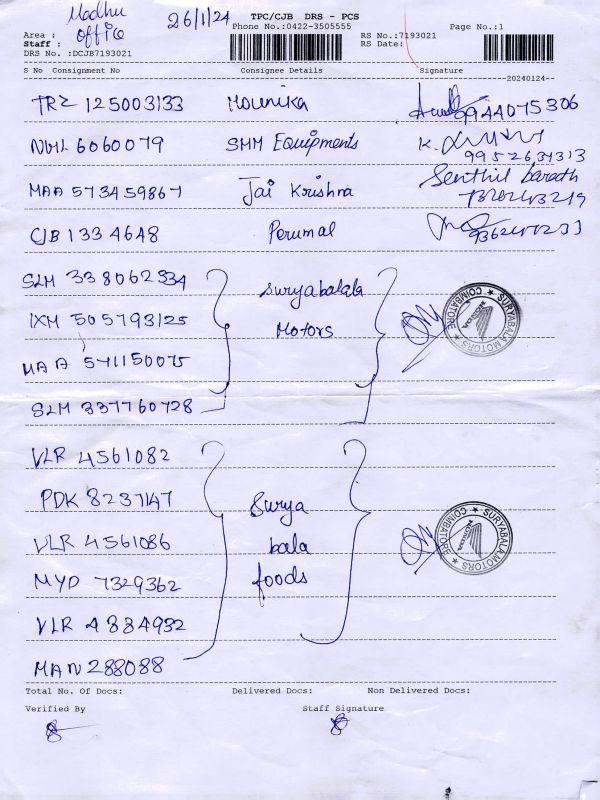 Madhu
office
26/1/24
TPC/CJB DRS - PCS
Phone No.:0422-3505555
Page No.:1
Area :
Staff :
DRS No. :DCJB7193021
RS No.:7193021
RS Date:
S No Consignment No Consignee Details Signature
20240124
TRZ 125003133 Mounika 9944075306
6060079 SMM Equipments K.
9952631313
MAA 573459867 Jai Krishna Senthil barath
CJB 1334648 Perumal
SLM 338062334 Suryabalala
IXM 505793125 Motors
MAA 541150075
SLM 337760728
SURYABALA MOTORS
COIMBATORE
HONDA
VLR 4561082
PDK 8237147 Surya
VLR 4561086 bala
MYD 7329362 foods
VLR 4834932
MAN 288088
SURYABALA MOTORS
COIMBATORE
HONDA
Total No. Of Docs: Delivered Docs: Non Delivered Docs:
Verified By Staff Signature